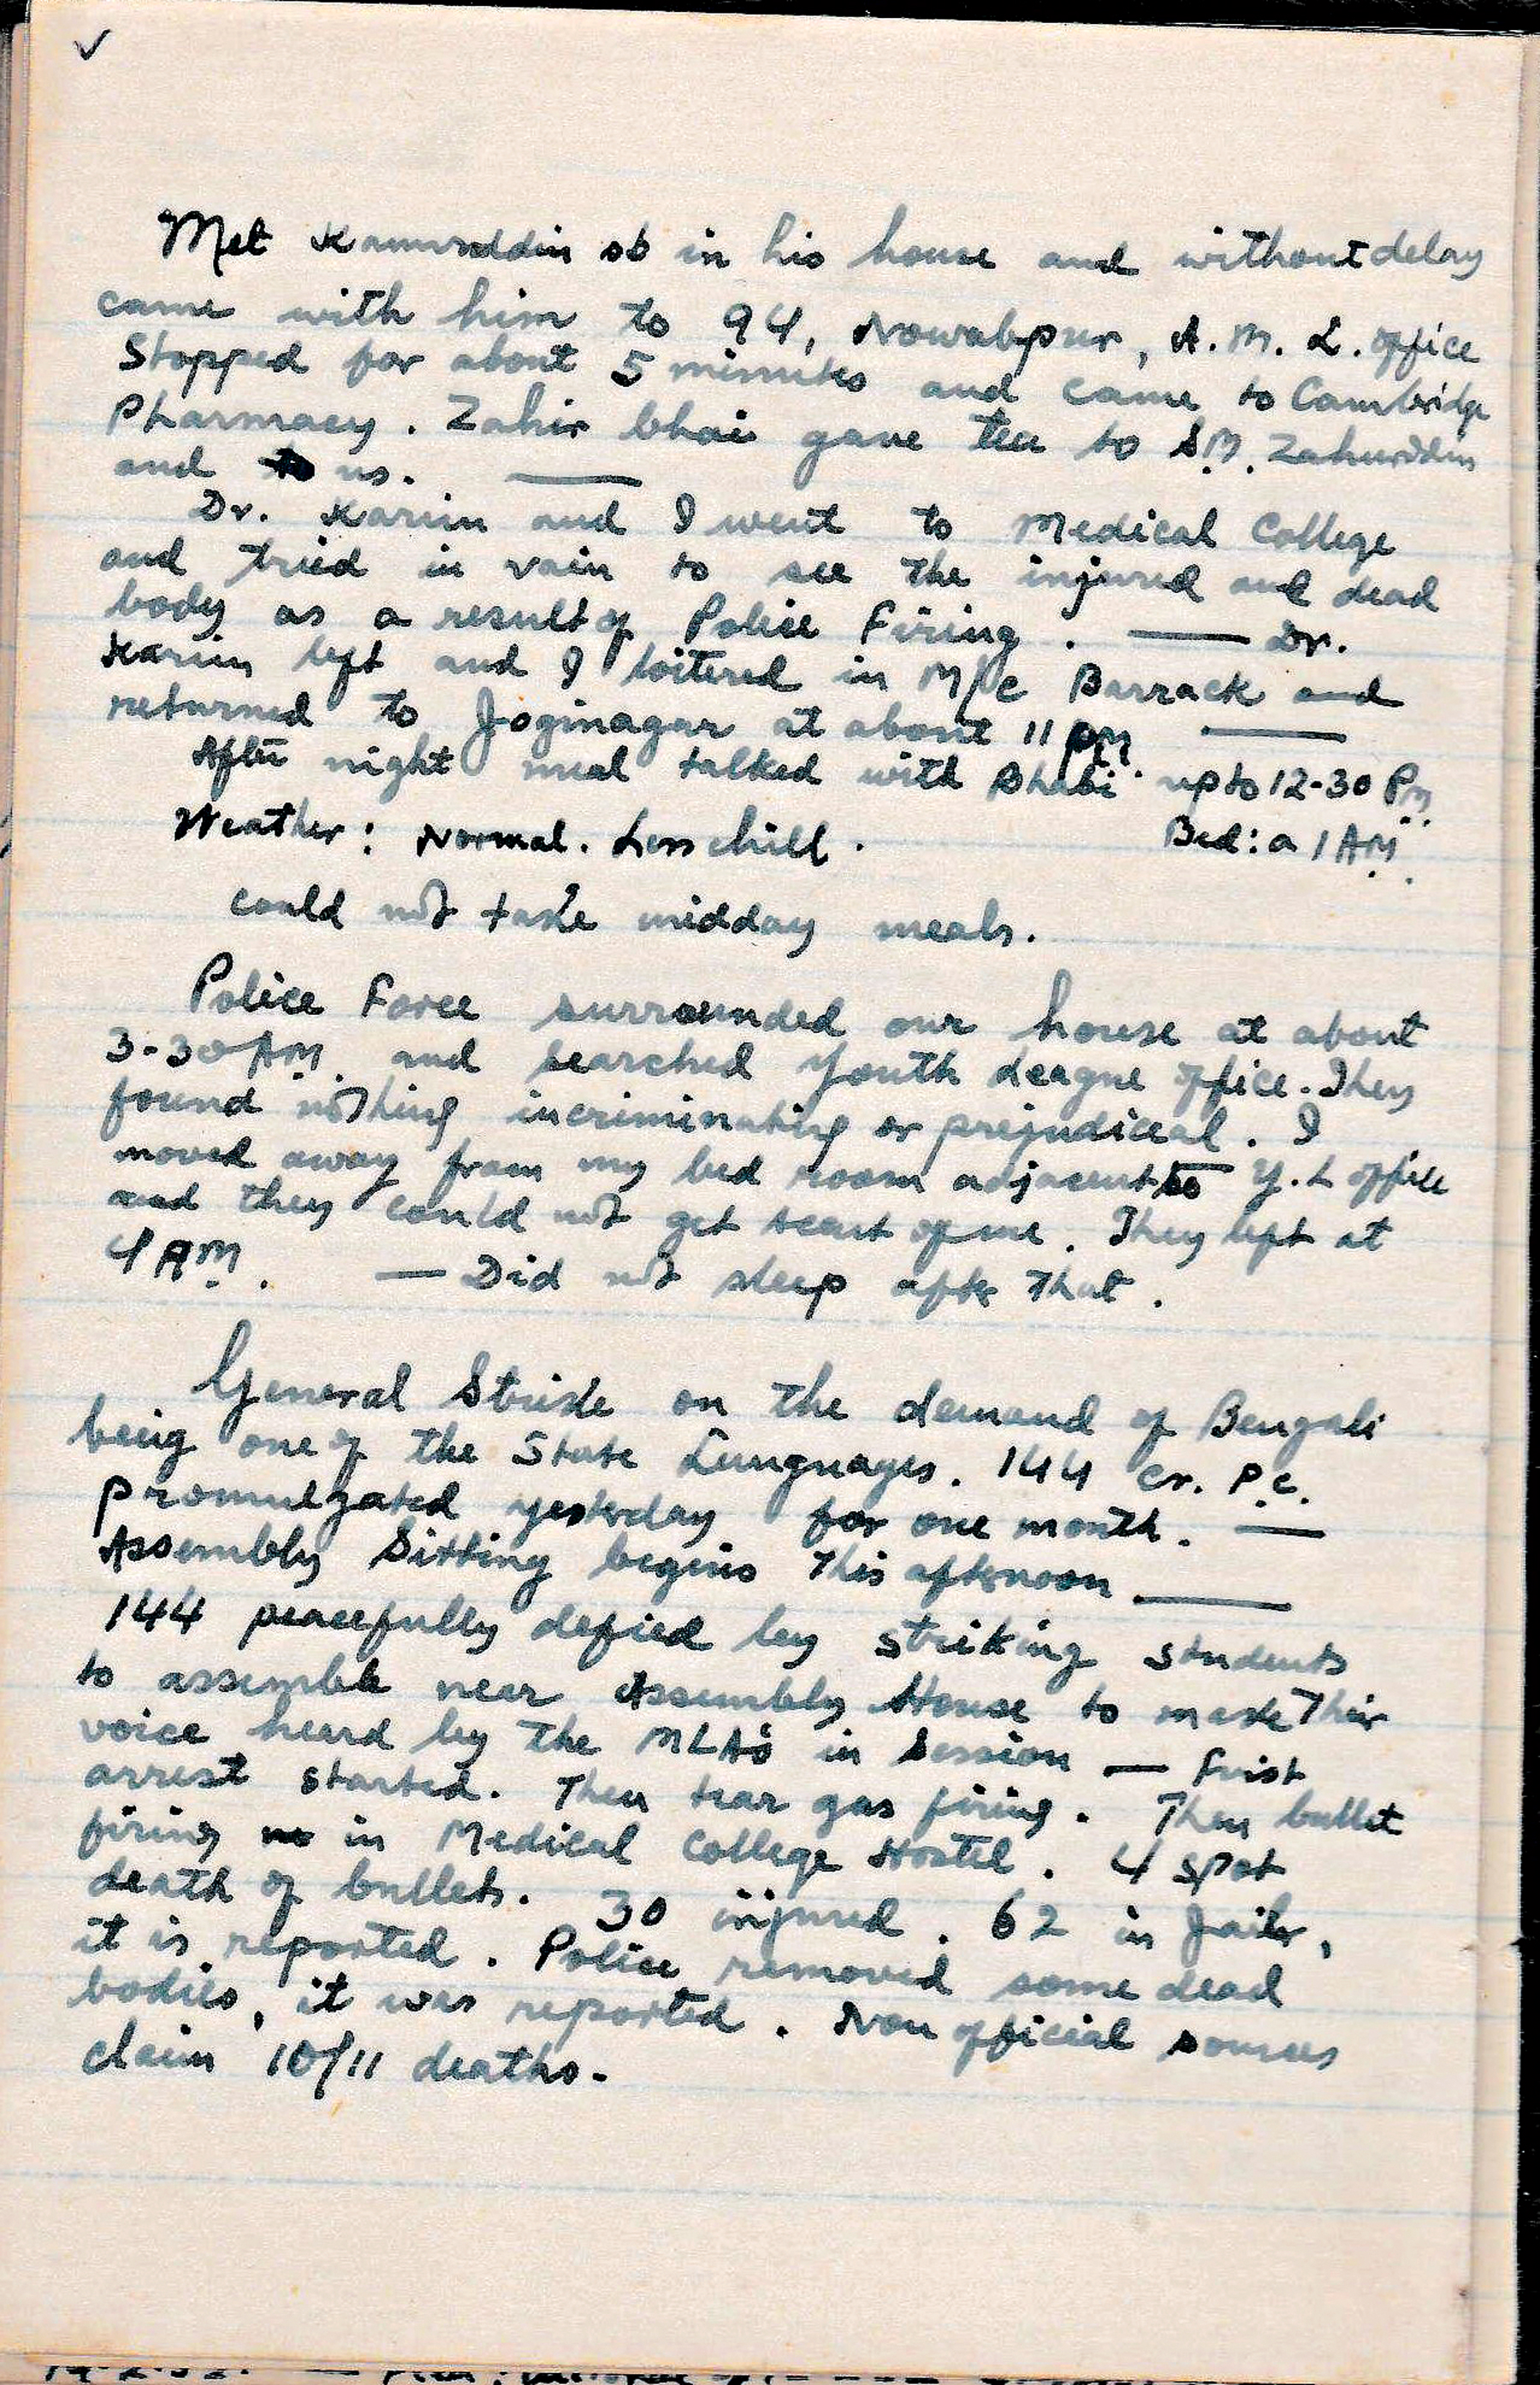 Met Kamruddin sb in his house and without delay
came with him to 94, Nowabpur, A.M.L. office
Stopped for about 5 minutes and came to Cambridge
Pharmacy. Zahir bhai gave tea to S.M. Zahurddin
and us. —
Dr. Karim and I went to Medical College
and tried in vain to see the injured and dead
body as a result of Police Firing. — Dr.
Karim left and I loitered in M/C Barrack and
returned to Joginagar at about 11 PM —
After night meal talked with Bhabi up to 12-30 PM.
Weather: Normal. Less chill. Bed: a 1 AM.
could not take midday meals.
Police Force surrounded our house at about
3-30 AM. and searched Youth League office. They
found nothing incriminating or prejudiceal. I
moved away from my bed room adjacent to Y.L office
and they could not get scent of me. They left at
4 AM. — Did not sleep after that.
General Strike on the demand of Bengali
being one of the State Languages. 144 Cr. P.C.
promulgated yesterday for one month. —
Assembly Sitting begins this afternoon —
144 peacefully defied by striking students
to assemble near Assembly House to make their
voice heard by the MLA's in Session — Frist
arrest started. Then tear gas firing. Then bullet
firing in Medical College Hostel. 4 spot
death of bullets. 30 injured. 62 in Jail,
it is reported. Police removed some dead
bodies, it was reported. Non official sources
claim 10/11 deaths.